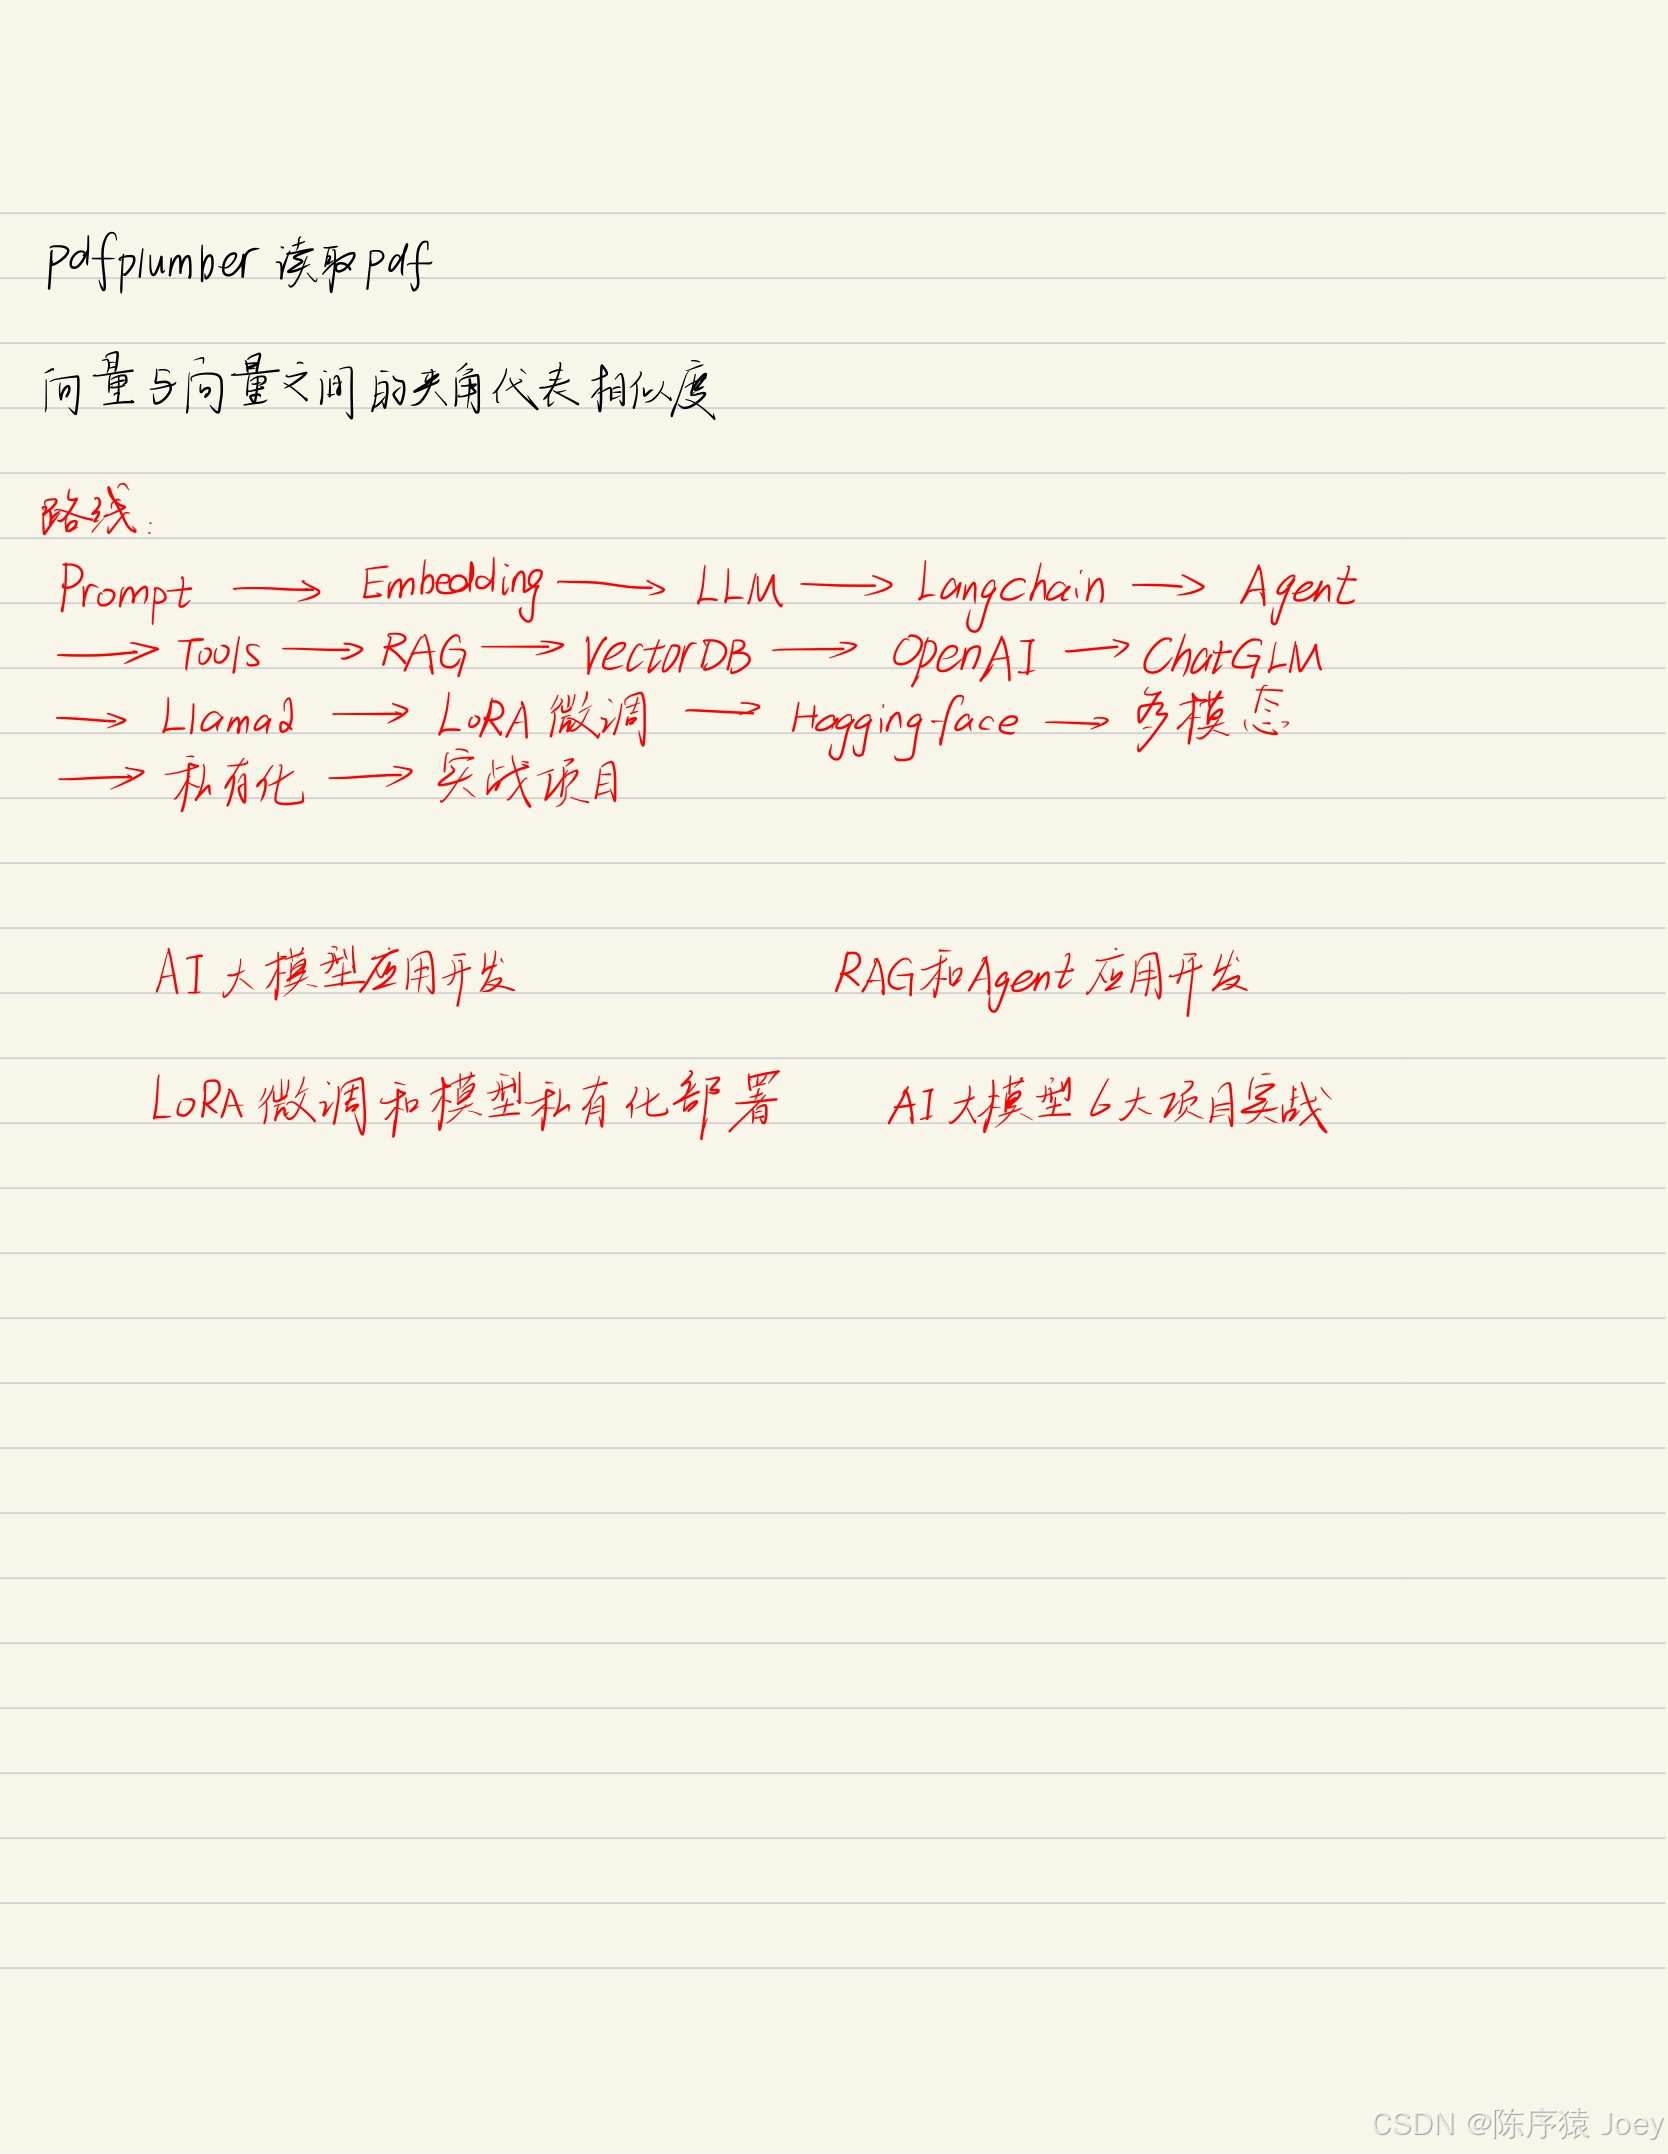 pdfplumber 读取pdf
向量与向量之间的夹角代表相似度
路线:
Prompt → Embedding → LLM → Langchain → Agent
→ Tools → RAG → VectorDB → OpenAI → ChatGLM
→ Llama2 → LoRA 微调 → Haggingface → 多模态
→ 私有化 → 实战项目
AI大模型应用开发 RAG和Agent应用开发
LoRA 微调和模型私有化部署 AI大模型6大项目实战
CSDN @陈序猿 Joey